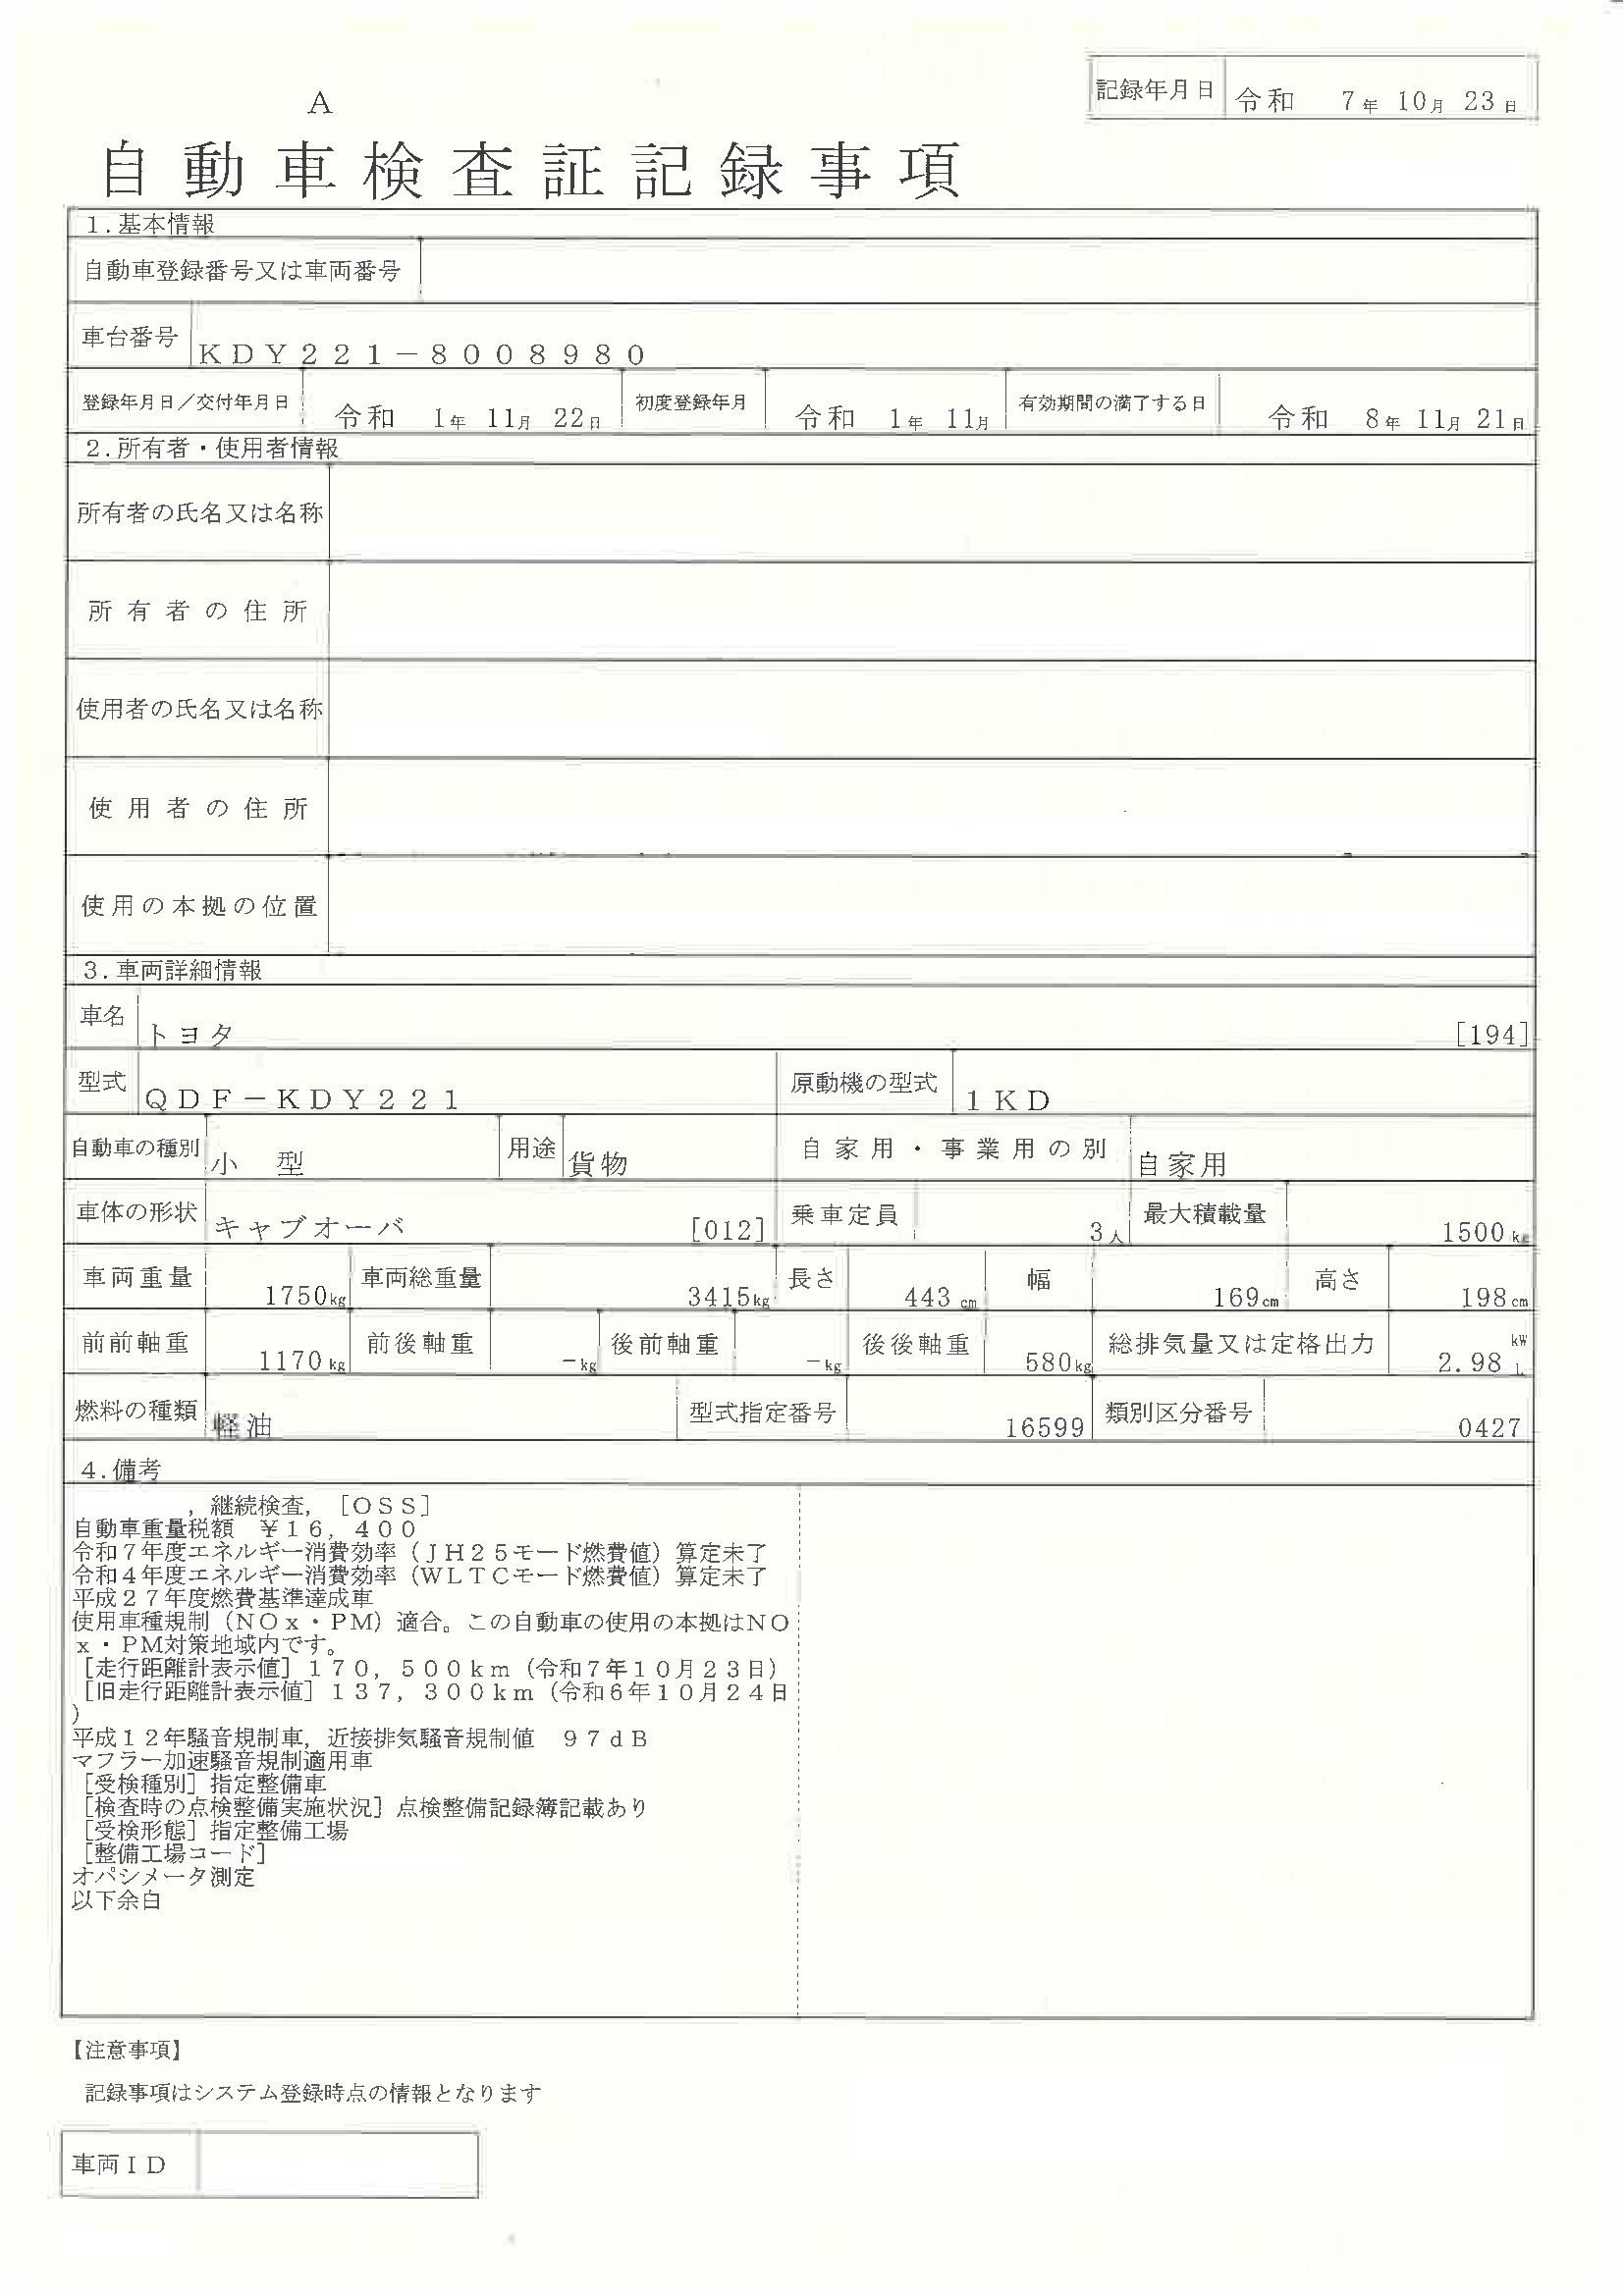 記録年月日 令和 7年 10月 23日
A
自動車検査証記録事項
1.基本情報
自動車登録番号又は車両番号
車台番号 KDY221-8008980
登録年月日/交付年月日 令和 1年 11月 22日 初度登録年月 令和 1年 11月 有効期間の満了する日 令和 8年 11月 21日
2.所有者・使用者情報
所有者の氏名又は名称
所有者の住所
使用者の氏名又は名称
使用者の住所
使用の本拠の位置
3.車両詳細情報
車名 トヨタ [194]
型式 QDF-KDY221 原動機の型式 1KD
自動車の種別 小型 用途 貨物 自家用・事業用の別 自家用
車体の形状 キャブオーバ [012] 乗車定員 3人 最大積載量 1500kg
車両重量 1750kg 車両総重量 3415kg 長さ 443cm 幅 169cm 高さ 198cm
前前軸重 1170kg 前後軸重 -kg 後前軸重 -kg 後後軸重 580kg 総排気量又は定格出力 2.98 kW L
燃料の種類 軽油 型式指定番号 16599 類別区分番号 0427
4.備考
,継続検査,[OSS]
自動車重量税額 ¥16,400
令和7年度エネルギー消費効率(JH25モード燃費値)算定未了
令和4年度エネルギー消費効率(WLTCモード燃費値)算定未了
平成27年度燃費基準達成車
使用車種規制(NOx・PM)適合。この自動車の使用の本拠はNO
x・PM対策地域内です。
[走行距離計表示値]170,500km(令和7年10月23日)
[旧走行距離計表示値]137,300km(令和6年10月24日
)
平成12年騒音規制車,近接排気騒音規制値 97dB
マフラー加速騒音規制適用車
[受検種別]指定整備車
[検査時の点検整備実施状況]点検整備記録簿記載あり
[受検形態]指定整備工場
[整備工場コード]
オパシメータ測定
以下余白
【注意事項】
記録事項はシステム登録時点の情報となります
車両ID